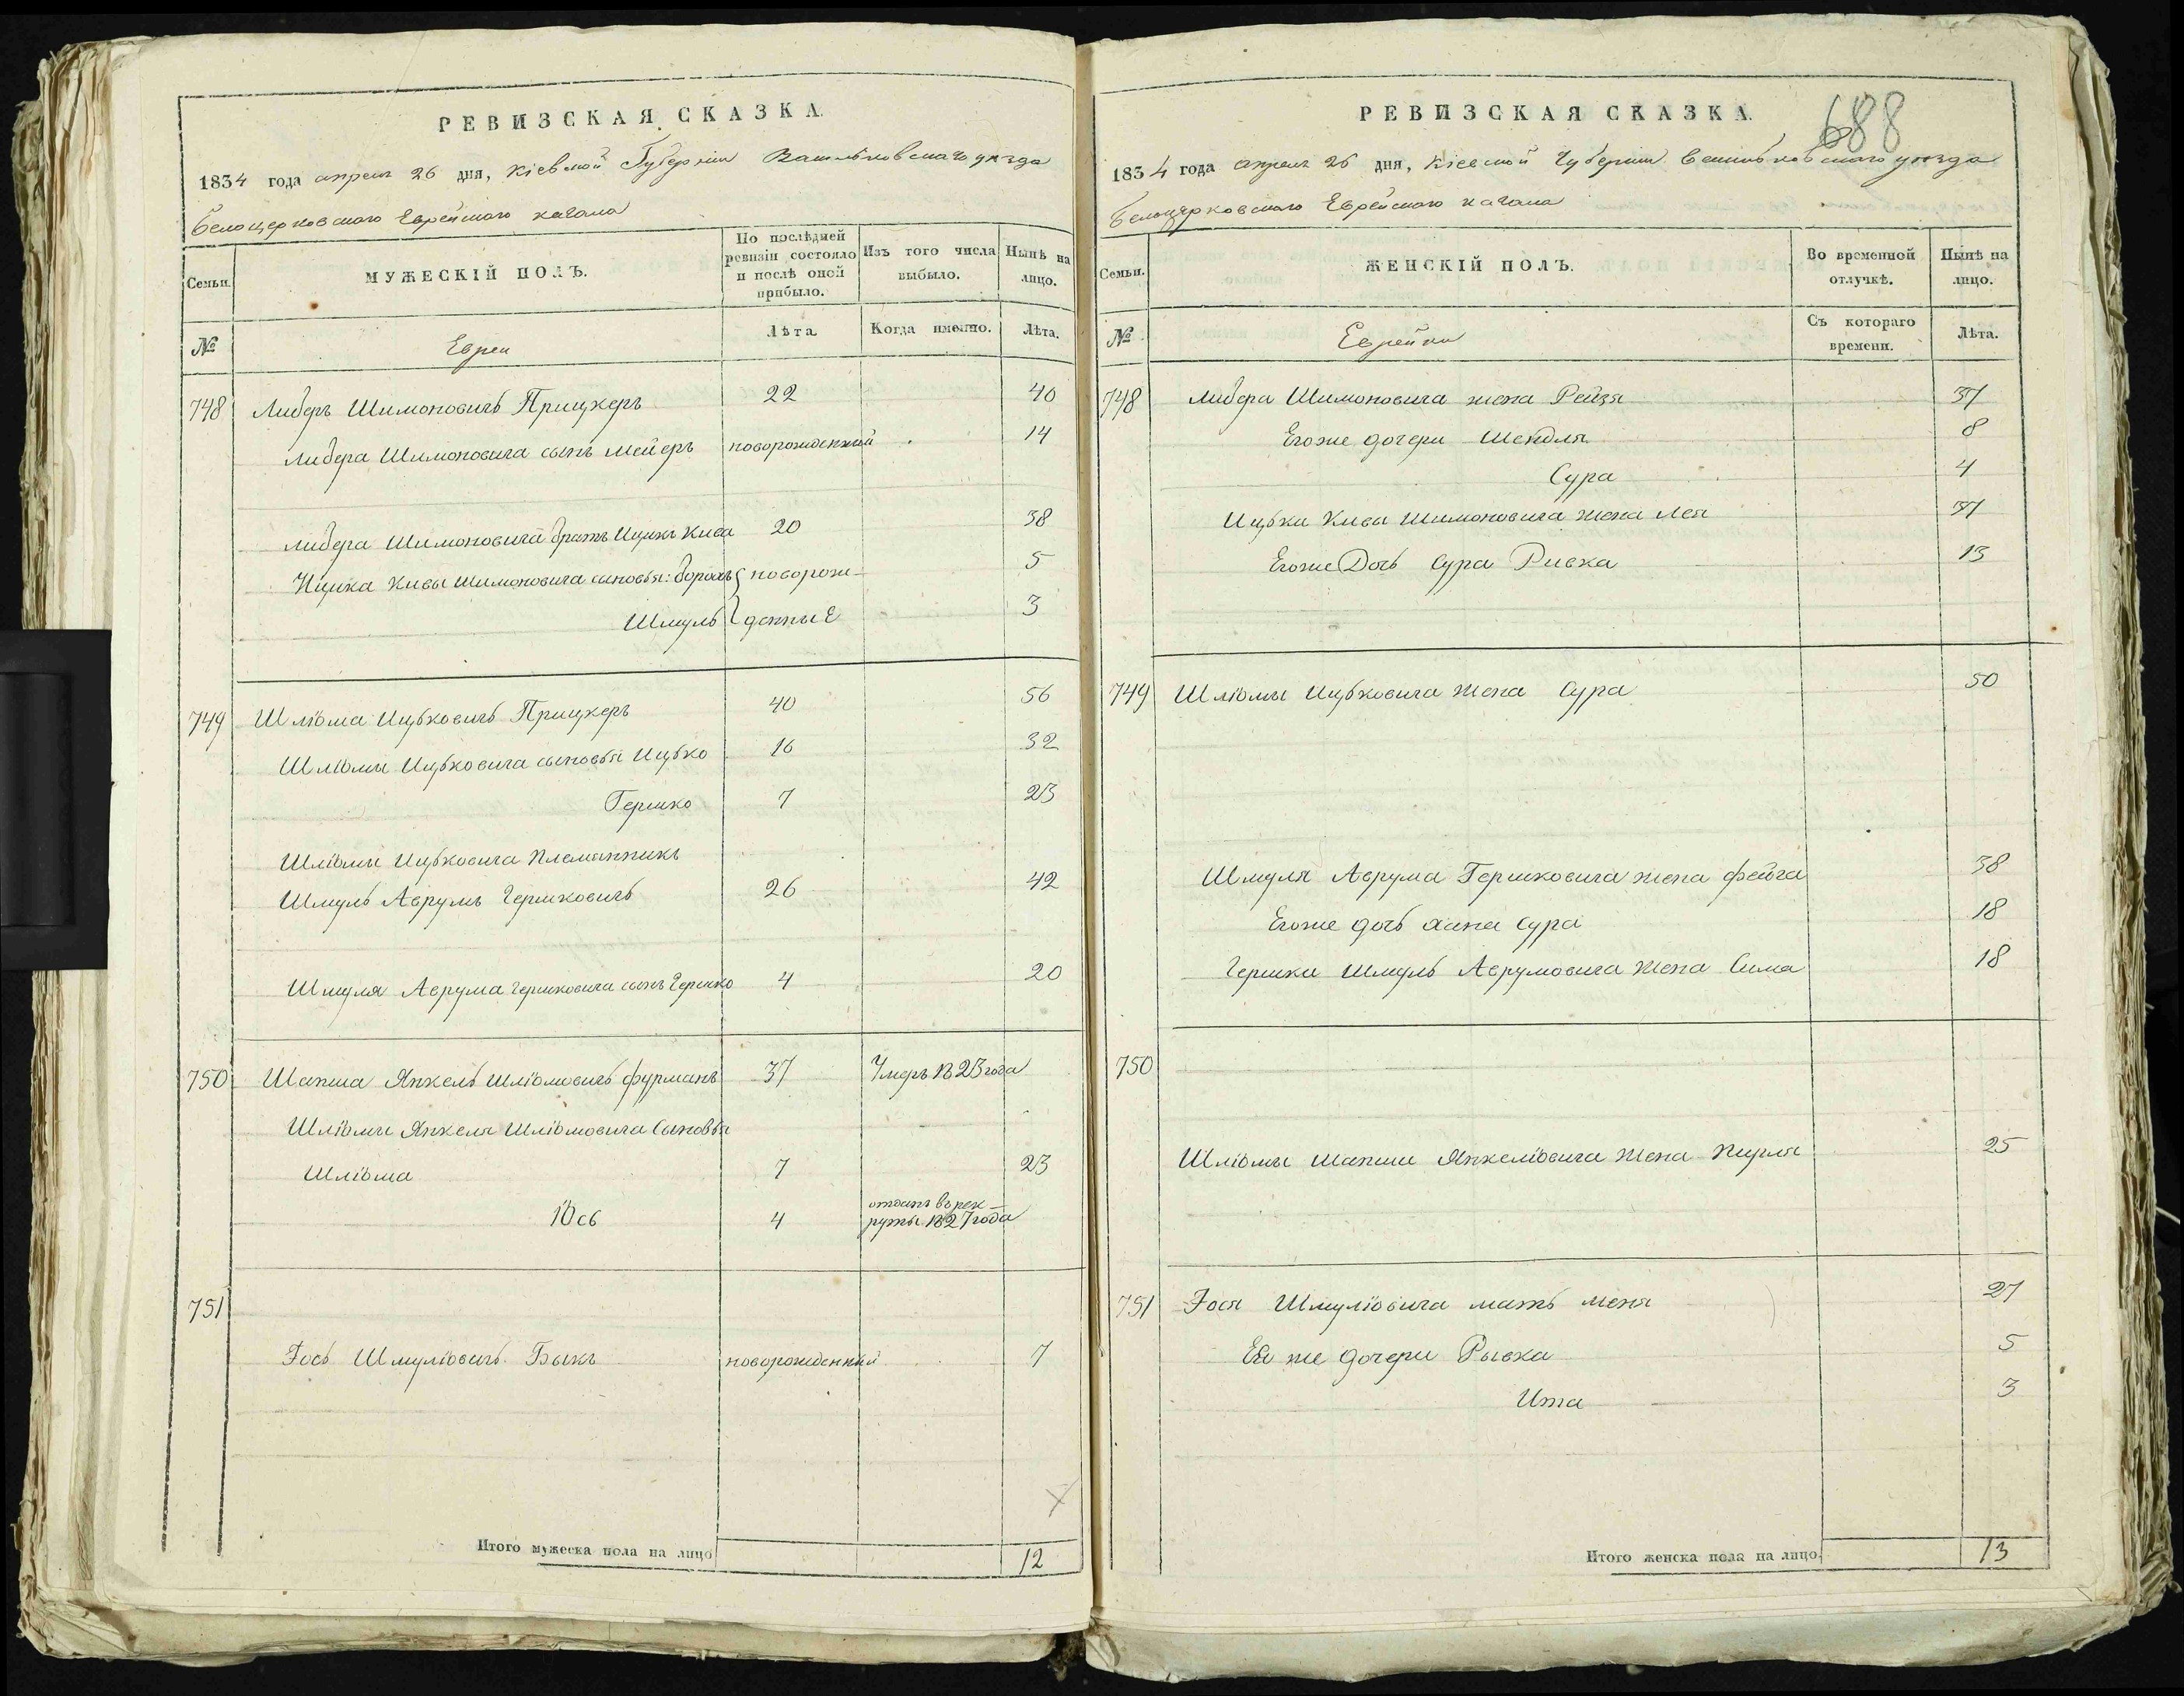 РЕВИЗСКАЯ СКАЗКА
1834 года апреля 26 дня, Кіевской Губерніи Васильковскаго уезда
Белоцерковскаго Еврейскаго кагала
Семьи. МУЖЕСКІЙ ПОЛЪ. По послѣдней ревизіи состояло и послѣ оной прибыло. Изъ того числа выбыло. Нынѣ на лицо.
№ Евреи Лѣта Когда именно. Лѣта.
748 Либеръ Шимоновичъ Прицкеръ 22 40
Либера Шимоновича сынъ Мейеръ новорожденный 14
Либера Шимоновича братъ Ицикъ Кива 20 38
Ицика Кивы Шимоновича сыновья: Борохъ новорож- 5
Шмуль денные 3
749 Шліома Ицковичъ Прицкеръ 40 56
Шліомы Ицьковича сыновья Ицько 16 32
Гершко 7 23
Шліомы Ицьковича племянникъ
Шмуль Аврумъ Гершковичъ 26 42
Шмуля Аврума Гершковича сынъ Гершко 4 20
750 Шапша Янкель Шліомовичъ Фурманъ 37 Умеръ 1823 года
Шліомы Янкеля Шліомовича Сыновья
Шліома 7 23
Юсь 4 отданъ въ рек-
руты 1827 года
751
Іось Шмуліовичъ Быкъ новорожденный 7
Итого мужеска пола на лицо 12
РЕВИЗСКАЯ СКАЗКА.
688
1834 года апреля 26 дня, Кіевской Губерніи Васильковскаго уезда
Белоцерковскаго Еврейскаго кагала
Семьи. ЖЕНСКІЙ ПОЛЪ. Во временной отлучкѣ. Нынѣ на лицо.
№ Еврейки Съ котораго времени. Лѣта.
748 Либера Шимоновича жена Рейзя 37
Егоже дочери Шендля 8
Сура 4
Ицька Кивы Шимоновича жена Лея 37
Егоже Дочь Сура Ривка 13
749 Шліомы Ицьковича жена Сура 50
Шмуля Аврума Гершковича жена Фейга 38
Егоже дочь Хана Сура 18
Гершка Шмуль Аврумовича жена Сима 18
750
Шліомы Шапши Янкеліовича жена 25
751 Іося Шмуліовича мать Меня 27
Ея же дочери Рывка 5
Ита 3
Итого женска пола на лицо. 13